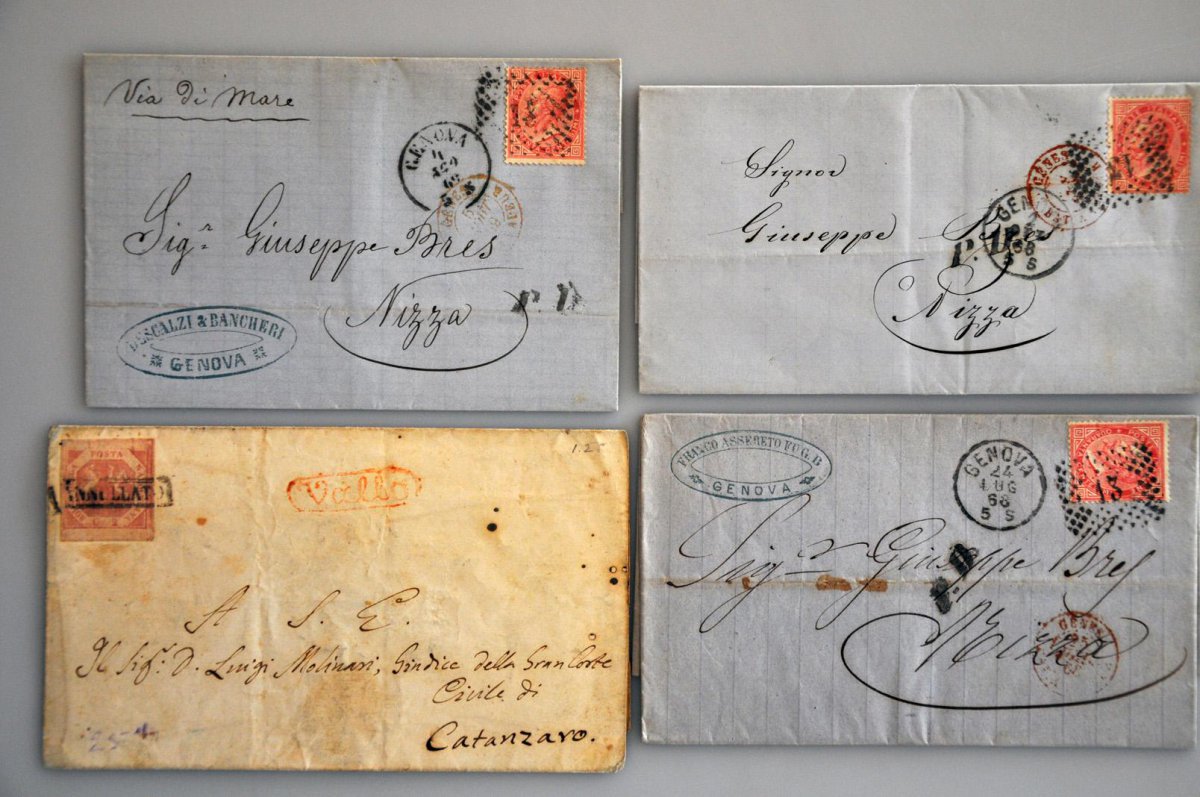 Via di Mare
GENOVA
11
AGO
69
Sig.r Giuseppe Bres
Nizza
P. D.
DESCALZI & BANCHERI
GENOVA
Signor
Giuseppe Bres
Nizza
GENES
P.
68
5 S
POSTA
ANNULLATO
Vallo
1.25
A S. E.
Il Sig.r D. Luigi Molinari, Giudice della Gran Corte
Civile di
Catanzaro.
FRANCO ASSERETO FUG. B
GENOVA
GENOVA
24
LUG
68
5 S
13
Sig.r Giuseppe Bres
Nizza